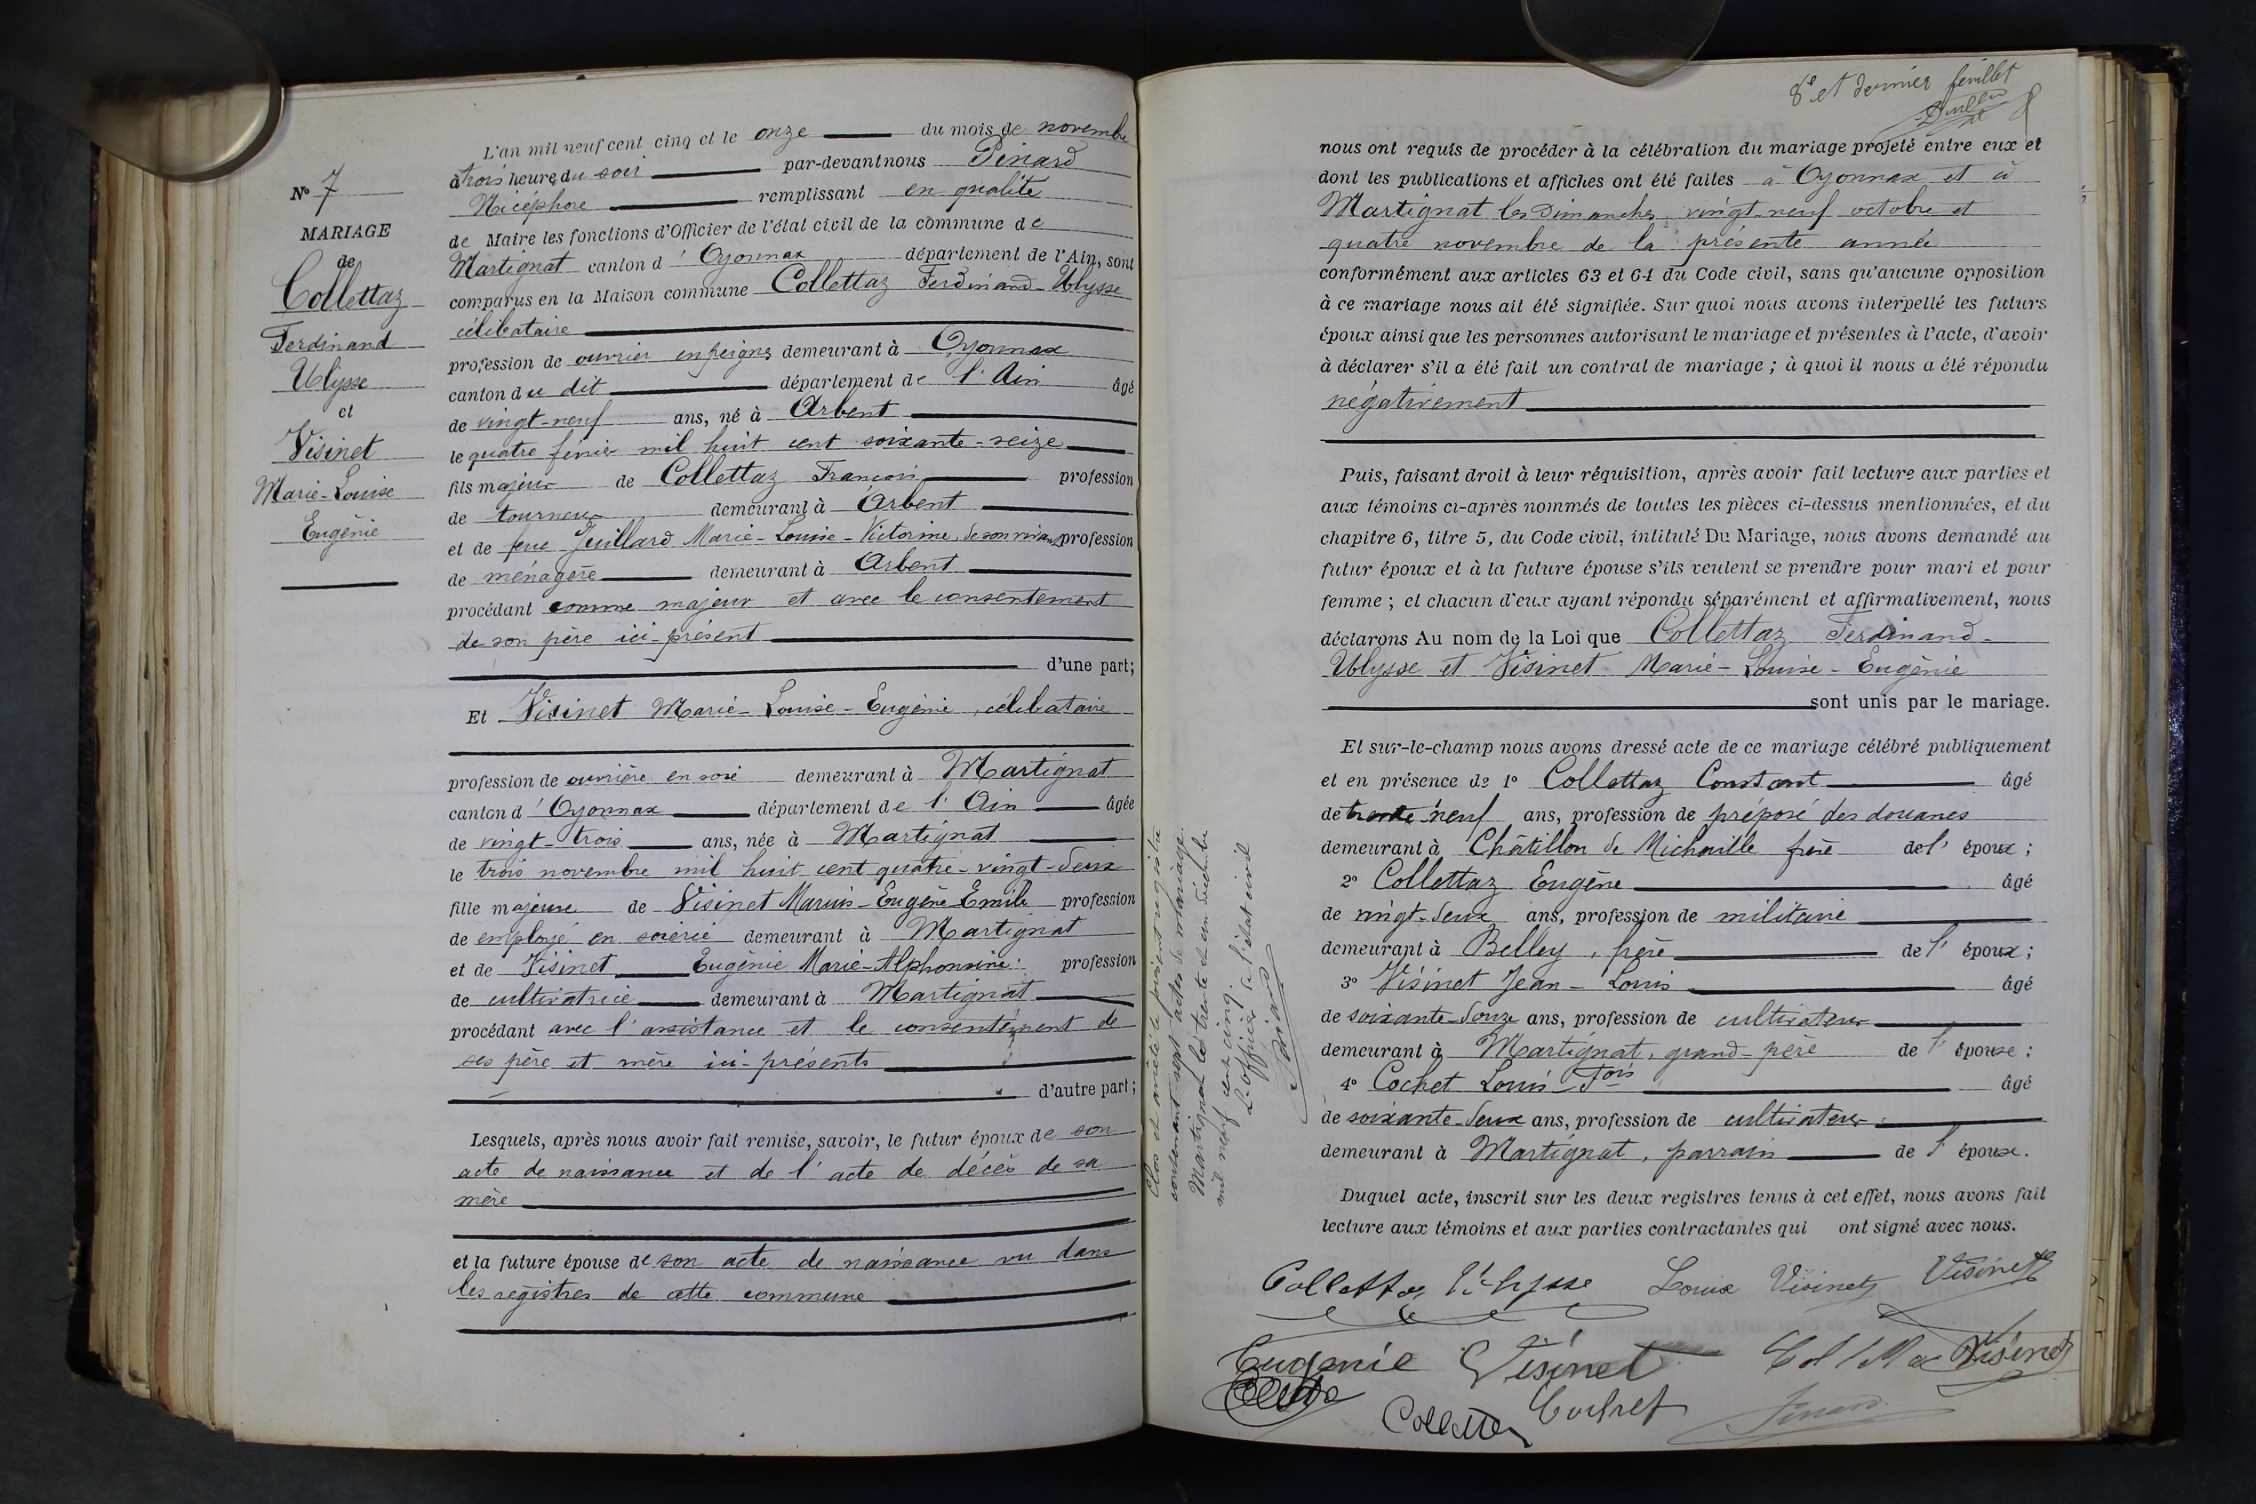 N° 7
MARIAGE
de
Collettaz
Ferdinand
Ulysse
et
Visinet
Marie-Louise
Eugénie
L'an mil neuf cent cinq et le onze du mois de novembre
à trois heures du soir par-devant nous Pinard
Nicéphore remplissant en qualité
de Maire les fonctions d'Officier de l'état civil de la commune de
Martignat canton d'Oyonnax département de l'Ain, sont
comparus en la Maison commune Collettaz Ferdinand-Ulysse
célibataire
profession de ouvrier en peignes demeurant à Oyonnax
canton du dit département de l'Ain âgé
de vingt-neuf ans, né à Arbent
le quatre février mil huit cent soixante-seize
fils majeur de Collettaz François profession
de tourneur demeurant à Arbent
et de feue Juillard Marie-Louise-Victorine, de son vivant profession
de ménagère demeurant à Arbent
procédant comme majeur et avec le consentement
de son père ici-présent
d'une part;
Et Visinet Marie-Louise-Eugénie, célibataire
profession de ouvrière en soie demeurant à Martignat
canton d'Oyonnax département de l'Ain âgée
de vingt-trois ans, née à Martignat
le trois novembre mil huit cent quatre-vingt-deux
fille majeure de Visinet Marius-Eugène-Emile profession
de employé en soierie demeurant à Martignat
et de Visinet Eugénie Marie-Alphonsine profession
de cultivatrice demeurant à Martignat
procédant avec l'assistance et le consentement de
ses père et mère ici-présents
d'autre part;
Lesquels, après nous avoir fait remise, savoir, le futur époux de son
acte de naissance et de l'acte de décès de sa
mère
et la future épouse de son acte de naissance vu dans
les registres de cette commune
Clos et arrêté le présent registre
contenant sept actes de mariage.
Martignat le trente et un décembre
mil neuf cent cinq.
L'officier de l'état civil
Pinard
8e et dernier feuillet
nous ont requis de procéder à la célébration du mariage projeté entre eux et
dont les publications et affiches ont été faites à Oyonnax et à
Martignat les Dimanches vingt-neuf octobre et
quatre novembre de la présente année
conformément aux articles 63 et 64 du Code civil, sans qu'aucune opposition
à ce mariage nous ait été signifiée. Sur quoi nous avons interpellé les futurs
époux ainsi que les personnes autorisant le mariage et présentes à l'acte, d'avoir
à déclarer s'il a été fait un contrat de mariage ; à quoi il nous a été répondu
négativement
Puis, faisant droit à leur réquisition, après avoir fait lecture aux parties et
aux témoins ci-après nommés de toutes les pièces ci-dessus mentionnées, et du
chapitre 6, titre 5, du Code civil, intitulé Du Mariage, nous avons demandé au
futur époux et à la future épouse s'ils veulent se prendre pour mari et pour
femme ; et chacun d'eux ayant répondu séparément et affirmativement, nous
déclarons Au nom de la Loi que Collettaz Ferdinand-
Ulysse et Visinet Marie-Louise-Eugénie
sont unis par le mariage.
Et sur-le-champ nous avons dressé acte de ce mariage célébré publiquement
et en présence de 1° Collettaz Constant âgé
de trente neuf ans, profession de préposé des douanes
demeurant à Châtillon de Michaille frère de l'époux ;
2° Collettaz Eugène âgé
de vingt-deux ans, profession de militaire
demeurant à Belley, frère de l'époux ;
3° Visinet Jean-Louis âgé
de soixante-douze ans, profession de cultivateur
demeurant à Martignat, grand-père de l'épouse ;
4° Cochet Louis-Fois âgé
de soixante-deux ans, profession de cultivateur
demeurant à Martignat, parrain de l'épouse.
Duquel acte, inscrit sur les deux registres tenus à cet effet, nous avons fait
lecture aux témoins et aux parties contractantes qui ont signé avec nous.
Collettaz Ulysse Louise Visinet Visinet
Eugénie Visinet Visinet
Collettaz Cochet Pinard